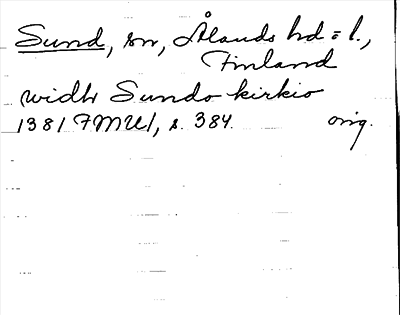 Sund, sn, Ålands hd = l.,
Finland
widh Sundo kirkio
1381 FMU 1, s. 384. orig.